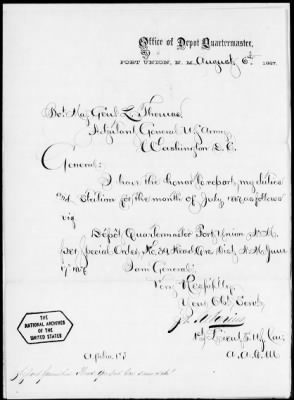 Office of Depot Quartermaster,
FORT UNION, N. M. August 6th 1867.
Bvt. Maj. Genl. L. Thomas
Adjutant General U.S. Army
Washington D.C.
General:
I have the honor to report my duties
and Station for the month of July 1867 as follows
viz
Depot Quartermaster Fort Union N.M.
per Special Order No. 59 Head Qrs. Dist. N.M. June
17" 1867
I am General:
Very Respectfly
Your Obt. Servt.
1st Lieut 3" U.S. Cav
A.A.Q.M
THE
NATIONAL ARCHIVES
OF THE
UNITED STATES